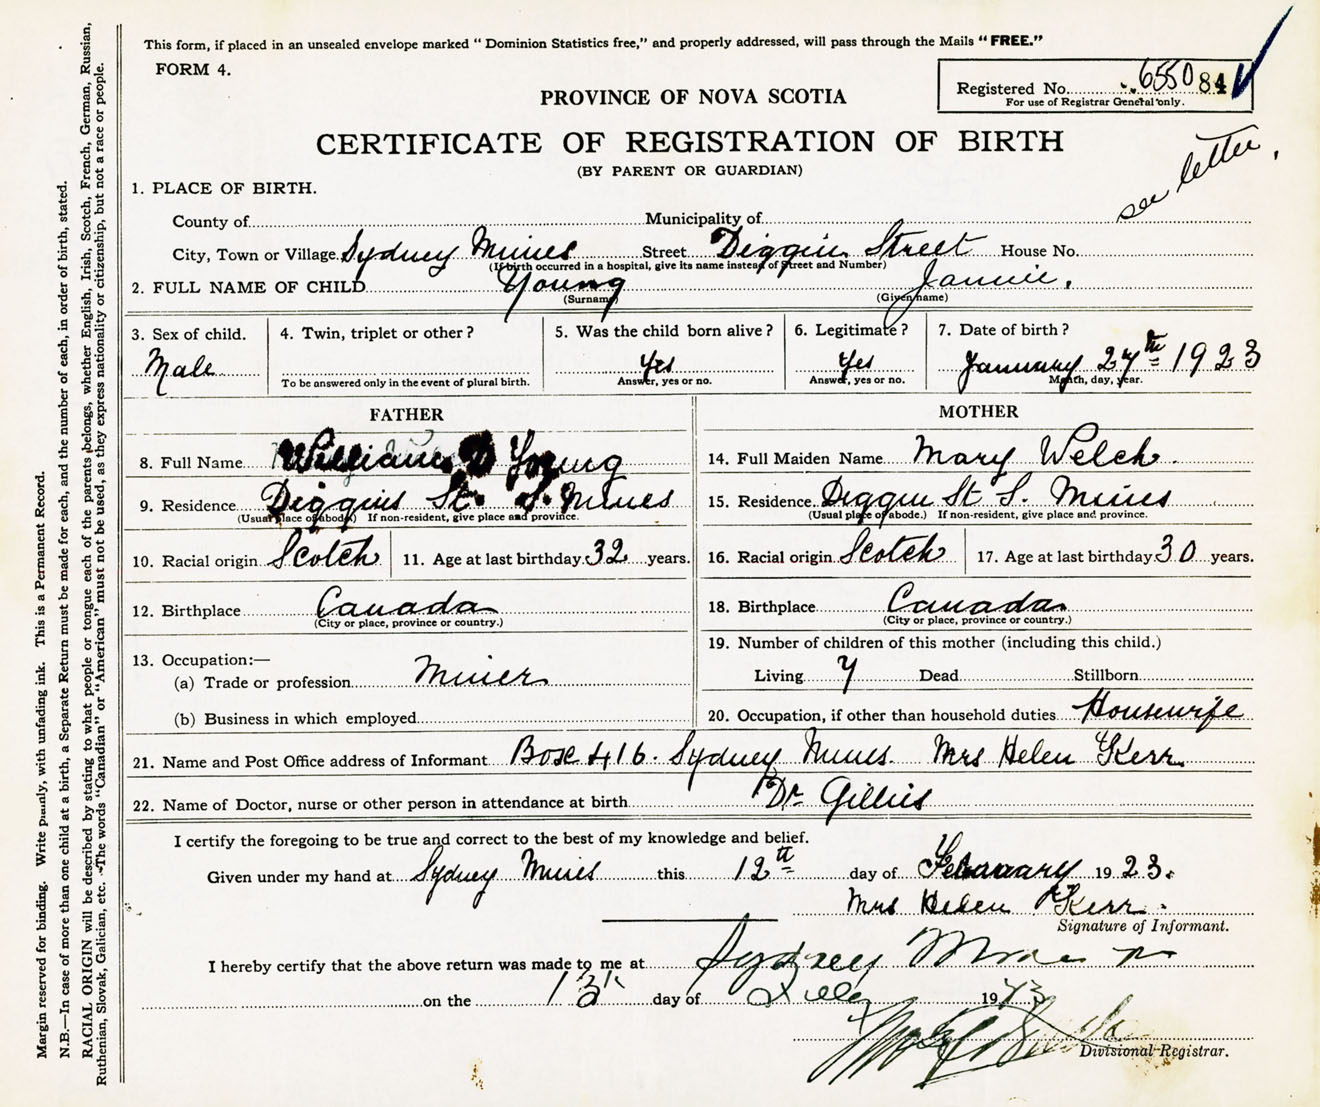 This form, if placed in an unsealed envelope marked "Dominion Statistics free," and properly addressed, will pass through the Mails "FREE."
FORM 4.
Registered No. 655084
For use of Registrar General only.
PROVINCE OF NOVA SCOTIA
CERTIFICATE OF REGISTRATION OF BIRTH
(BY PARENT OR GUARDIAN)
see letter
1. PLACE OF BIRTH.
County of Municipality of
City, Town or Village Sydney Mines Street Diggin Street House No.
(If birth occurred in a hospital, give its name instead of Street and Number)
2. FULL NAME OF CHILD Young Jannie.
(Surname) (Given name)
3. Sex of child. 4. Twin, triplet or other? 5. Was the child born alive? 6. Legitimate? 7. Date of birth?
Male Yes Yes January 27th 1923
To be answered only in the event of plural birth. Answer, yes or no. Answer, yes or no. Month, day, year.
FATHER MOTHER
8. Full Name William D Young 14. Full Maiden Name Mary Welch.
9. Residence Diggins St. S. Mines 15. Residence Diggin St S. Mines
(Usual place of abode.) If non-resident, give place and province. (Usual place of abode.) If non-resident, give place and province.
10. Racial origin Scotch 11. Age at last birthday 32 years. 16. Racial origin Scotch 17. Age at last birthday 30 years.
12. Birthplace Canada 18. Birthplace Canada
(City or place, province or country.) (City or place, province or country.)
13. Occupation:— 19. Number of children of this mother (including this child.)
(a) Trade or profession Miner Living Dead Stillborn
(b) Business in which employed 20. Occupation, if other than household duties Housewife
21. Name and Post Office address of Informant Box 416. Sydney Mines. Mrs Helen Kerr
22. Name of Doctor, nurse or other person in attendance at birth Dr Gillies
I certify the foregoing to be true and correct to the best of my knowledge and belief.
Given under my hand at Sydney Mines this 12th day of February 1923.
Mrs Helen Kerr.
Signature of Informant.
I hereby certify that the above return was made to me at Sydney Mines
on the 13th day of 19
Divisional Registrar.
Margin reserved for binding. Write plainly, with unfading ink. This is a Permanent Record.
N.B.—In case of more than one child at a birth, a Separate Return must be made for each, and the number of each, in order of birth, stated.
RACIAL ORIGIN will be described by stating to what people or tongue each of the parents belongs, whether English, Irish, Scotch, French, German, Russian,
Ruthenian, Slovak, Galician, etc. The words "Canadian" or "American" must not be used, as they express nationality or citizenship, but not a race or people.